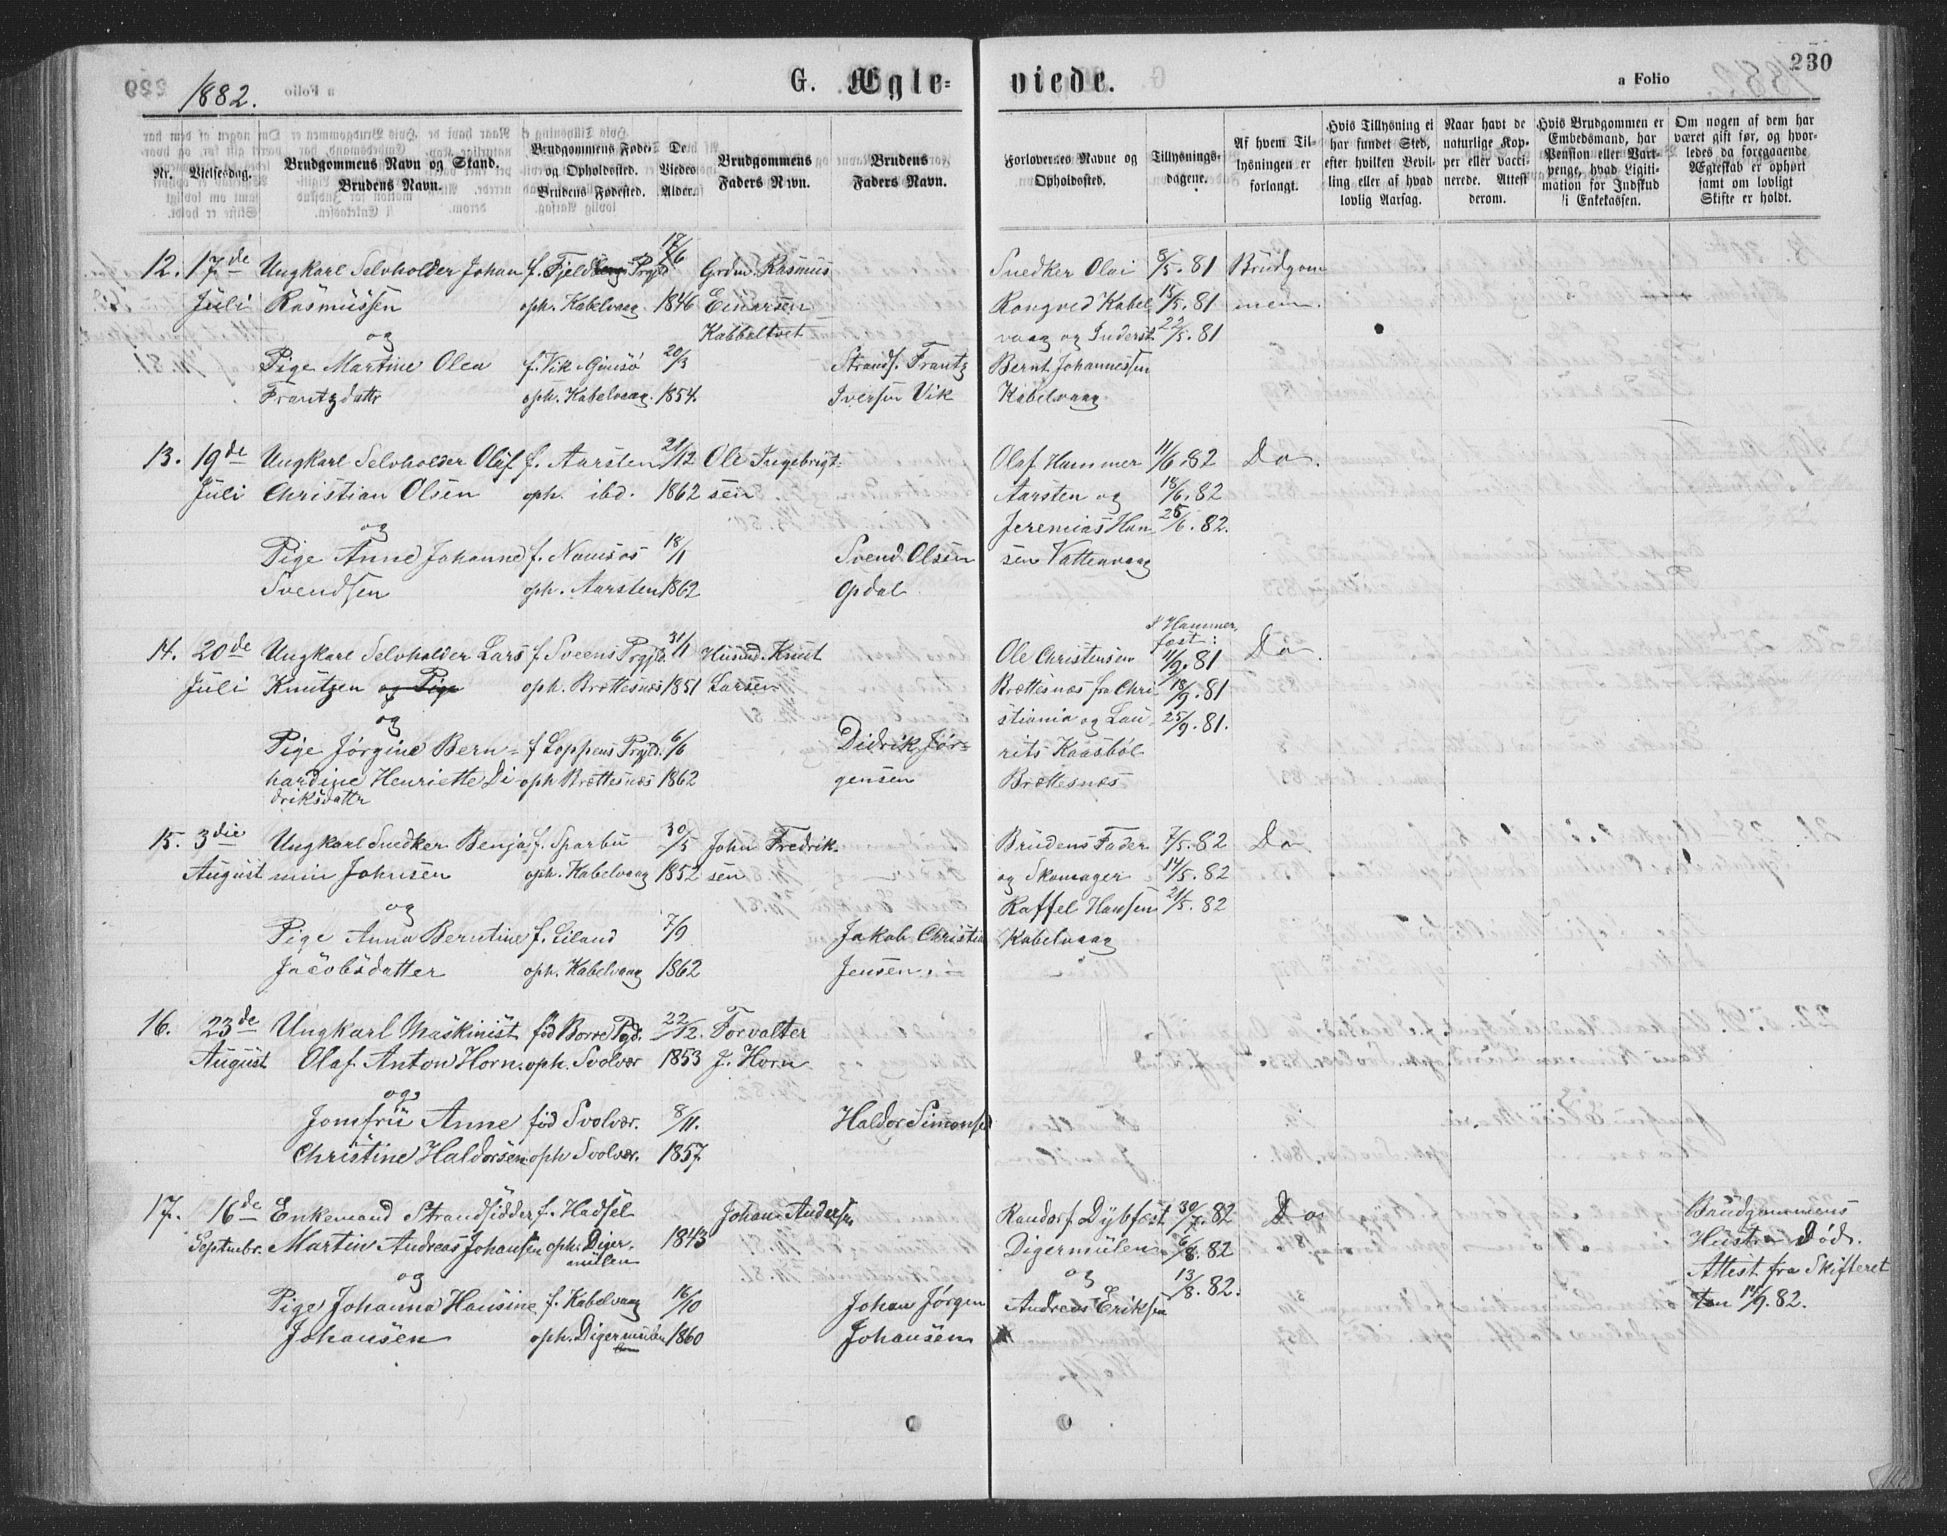 1882.
G. Ægte=
viede.
a Folio
230
Nr.
Vielsesdag.
Brudgommens Navn og Stand.
Brudens Navn.
Brudgommens Føde-
og Opholdssted.
Brudens Fødested.
De
Viedes
Alder.
Brudgommens
Faders Navn.
Brudens
Faders Navn.
Forlovernes Navne og
Opholdssted.
Tillysnings-
dagene.
Af hvem Til-
lysningen er
forlangt.
Hvis Tillysning ei
har fundet Sted,
efter hvilken Bevil-
ling eller af hvad
lovlig Aarsag.
Naar havt de
naturlige Kop-
per eller vacci-
nerede. Attest
derom.
Hvis Brudgommen er
Embedsmand, har
Pension eller Vart-
penge, hvad Ligiti-
mation for Indskud
i Enkekassen.
Om nogen af dem har
været gift før, og hvor-
ledes da foregaaende
Ægteskab er ophørt
samt om lovligt
Skifte er holdt.
12. 17de Ungkarl Selvholder Johan f. Fjeldberg Prgjld 17/6 Grdm. Rasmus Snedker Olai 8/5.81 Brudgom
Juli Rasmussen oph. Kabelvaag 1846 Einarsen Rongved Kabel 15/5.81 men.
og Kabbeltvet vaag og Inderst 22/5.81
Pige Martine Olea f. Vik Gimsø 20/3 Strands. Frantz Bernt Johannessen
Frantzdattr oph. Kabelvaag. 1854. Iversen Vik Kabelvaag
13. 19de Ungkarl Selvholder Olaf f. Aarsten 21/12 Ole Ingebrigt- Olaf Hammer 11/6.82 Do.
Juli Christian Olsen oph. ibd. 1862 sen Aarsten og 18/6.82
og Jeremias Han 25/6.82.
Pige Anne Johanne f. Namsos 18/1 Svend Olsen sen Vattenvaag
Svendsen oph. Aarsten 1862 Opdal
14. 20de Ungkarl Selvholder Lars f. Sveens Prgjld. 31/1 Husmd. Knut Ole Christensen i Hammer fest: 11/9.81 Do.
Juli Knutzen og Pige oph. Brettesnæs 1851 Larsen Brettesnæs fra Chri 18/9.81
og stiania og Lau- 25/9.81.
Pige Jørgine Bern= f Loppens Prgjld. 6/6 Didrik Jør- rits Kaasbøl
hardine Henriette Di oph Brettesnæs 1862 gensen Brettesnæs
driksdattr
15. 3die Ungkarl Snedker Benja f. Sparbu 30/5 John Fredrik- Brudens Fader 7/5.82 Do
August min Johnsen oph. Kabelvaag 1852 sen og Skomager 14/5.82
og Raffel Hansen 21/5.82
Pige Anna Berntine f. Liland 7/9 Jakob Christia Kabelvaag
Jacobsdatter oph. Kabelvaag 1862 Jensen
16. 23de Ungkarl Maskinist fød Borre Pgd. 22/12. Forvalter
August Olaf Anton Horn. oph. Svolvær 1853 J. Horn
og
Jomfru Anne fød Svolvær. 8/11. Haldor Simonsen
Christine Haldorsen oph Svolvær. 1857
17. 16de Enkemand Strandsidder f. Hadsel Johan Andersen Randorf Dybfest 30/7.82 Do Brudgommens
Septmbr. Martin Andreas Johansen oph. Diger. 1843 Digermulen 6/8.82 Hustru Død.
mulen
og og 13/8.82. Attest fra Skifteret
Pige Johanna Hansine f. Kabelvaag 16/10 Johan Jørgen Andreas Eriksen ten 14/9.82.
Johansen oph. Digermulen 1860 Johansen